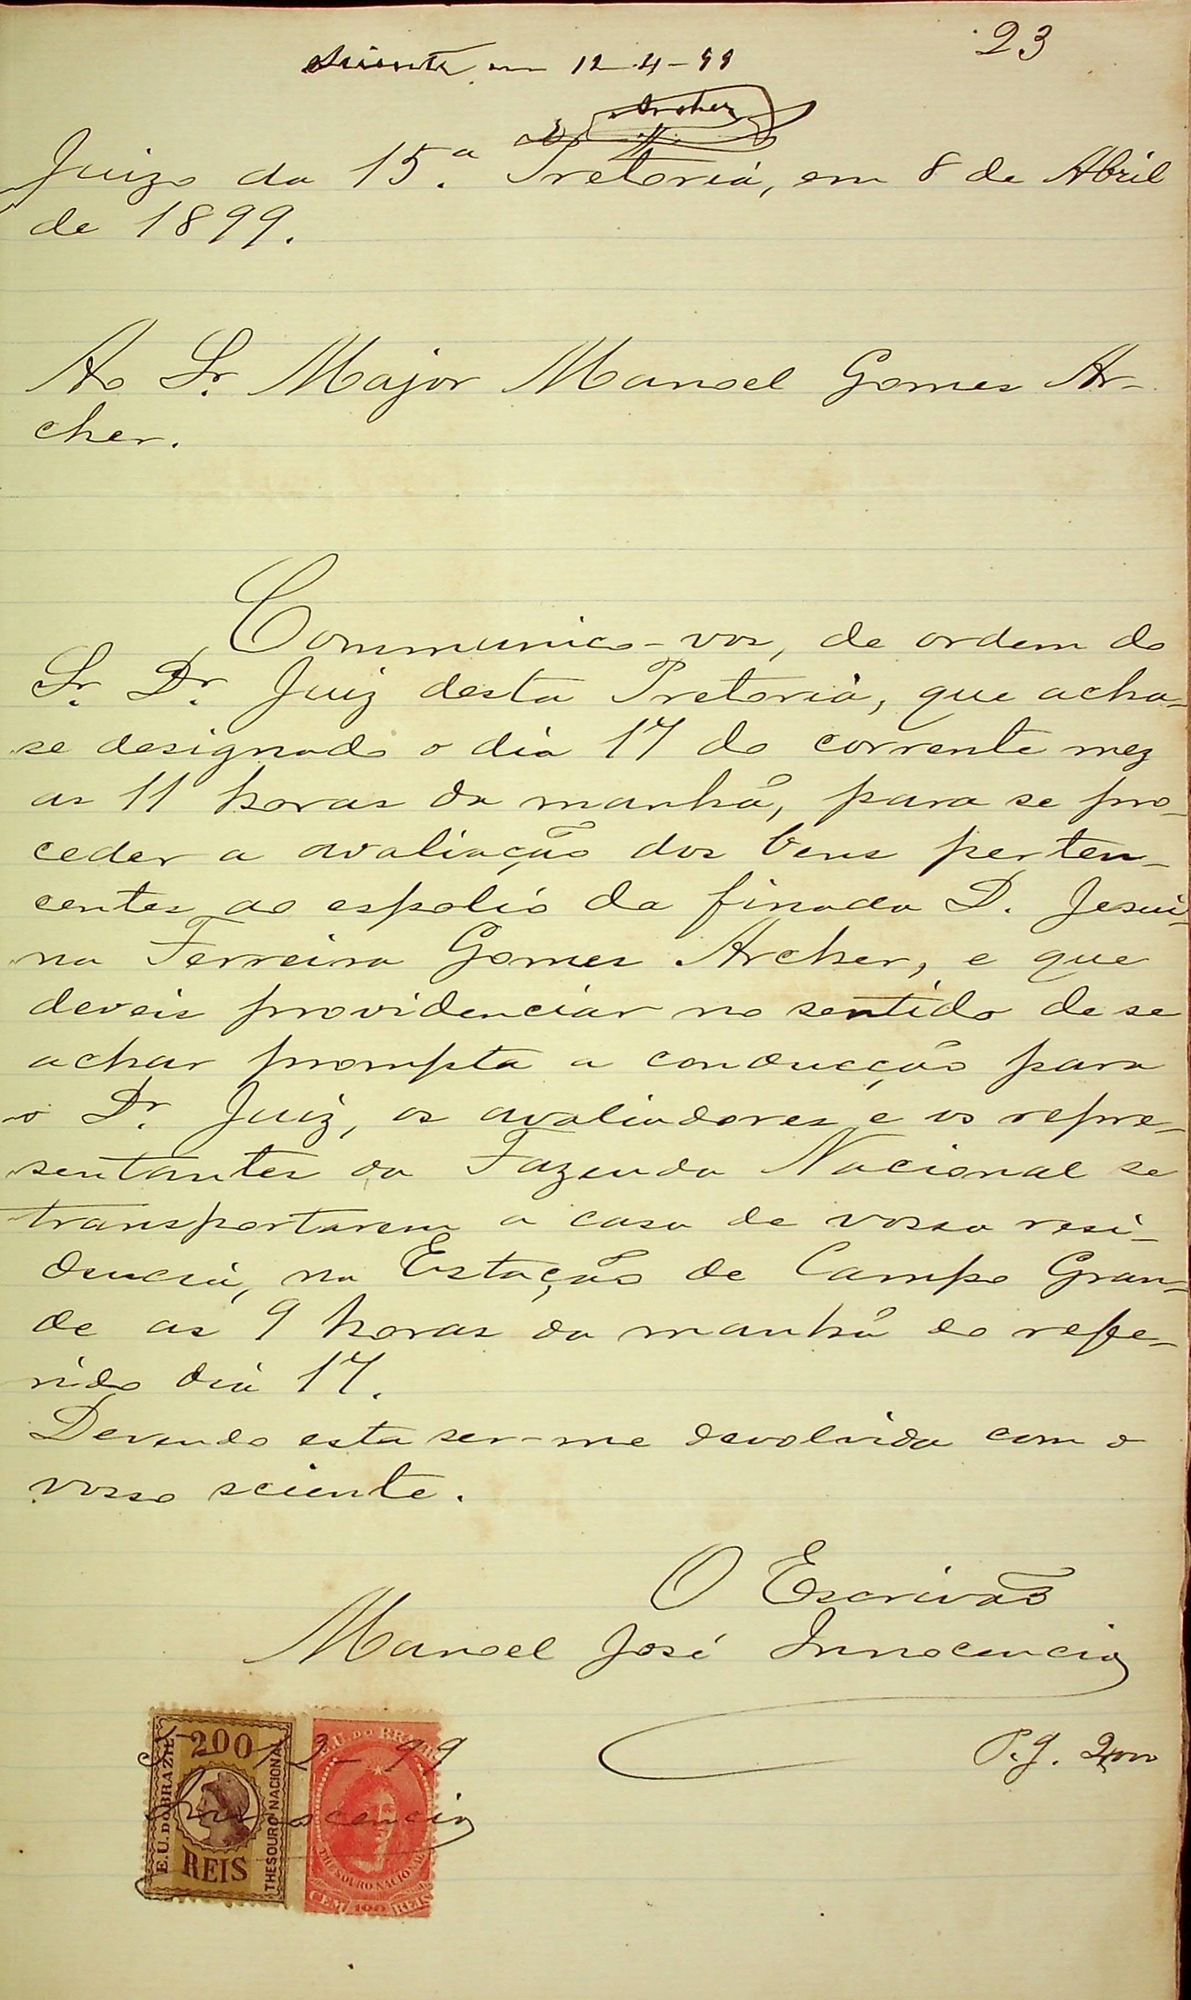 23
Sciente em 12-4-99
Archer
Juizo da 15.ª Pretoria, em 8 de Abril
de 1899.
Ao Sr. Major Manoel Gomes Ar-
cher.
Communico-vos, de ordem do
Sr. Dr. Juiz desta Pretoria, que acha-
se designado o dia 17 do corrente mez
as 11 horas da manhã, para se pro-
ceder a avaliação dos bens perten-
centes ao espolio da finada D. Jesui-
na Ferreira Gomes Archer, e que
deveis providenciar no sentido de se
achar prompta a conducção para
o Dr. Juiz, os avaliadores e os repre-
sentantes da Fazenda Nacional se
transportarem a casa de vossa resi-
dencia, na Estação de Campo Gran-
de as 9 horas da manhã do refe-
rido dia 17.
Devendo esta ser-me devolvida com o
vosso sciente.
O Escrivão
Manoel José Innocencio
P.g.
200
E.U. DO BRAZIL
THESOURO NACIONAL
REIS
E.U. DO BRAZIL
THESOURO NACIONAL
CEM 100 REIS
99
Innocencio